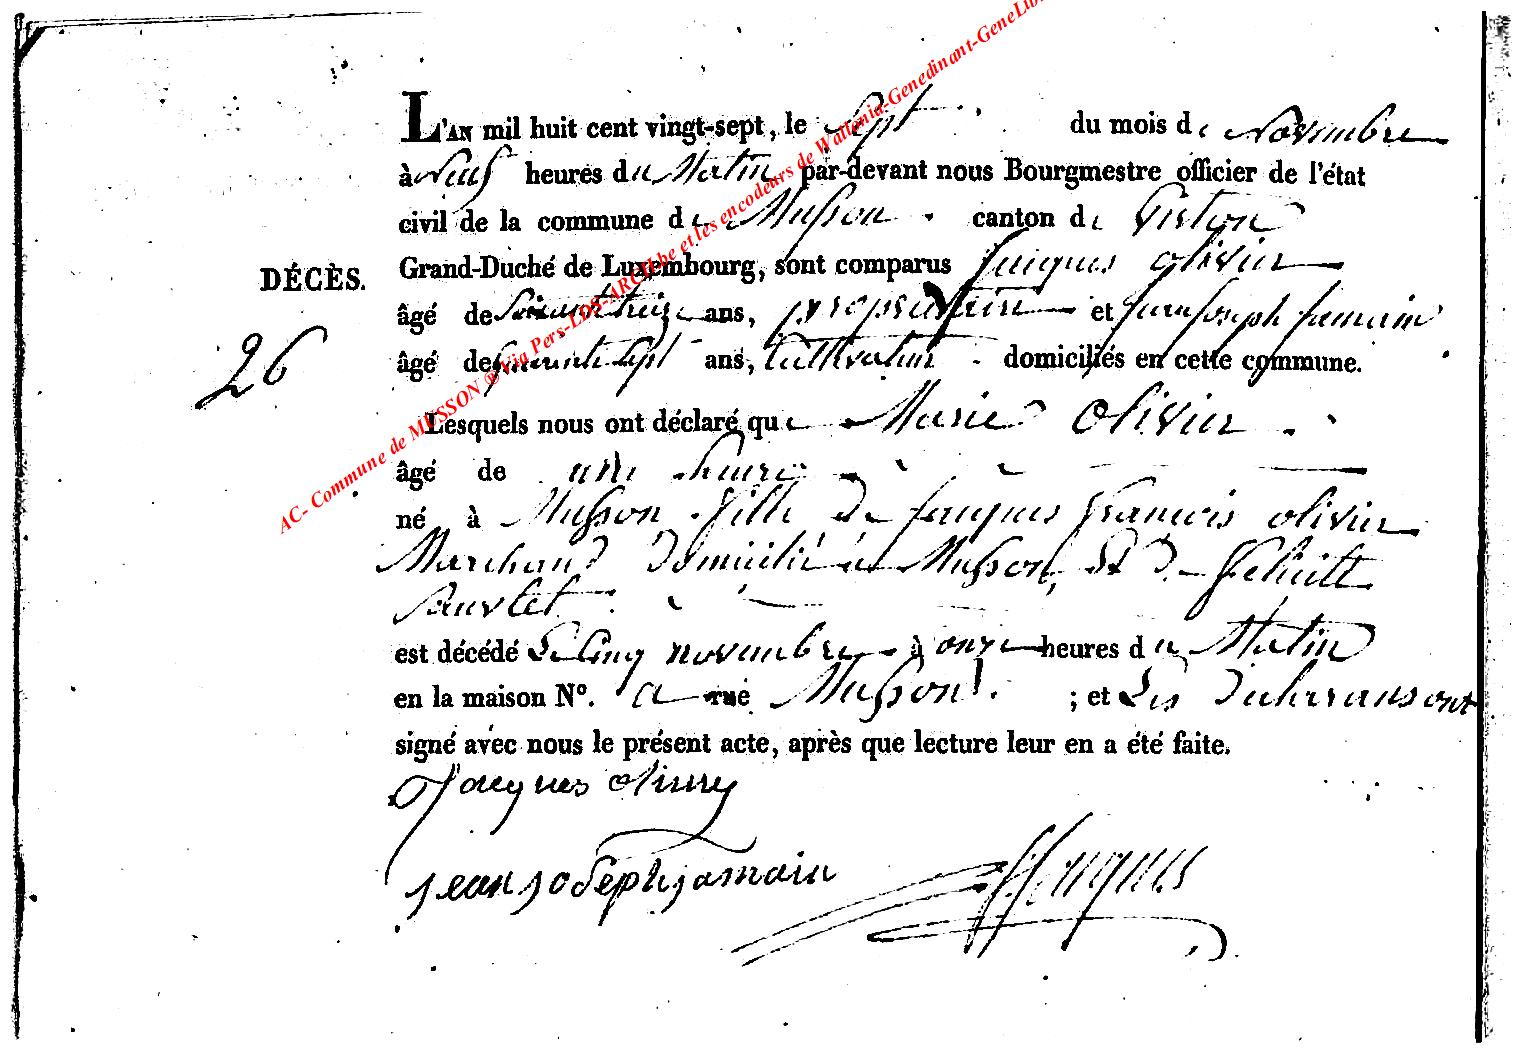 L'AN mil huit cent vingt-sept, le Sept du mois de Novembre
à Neuf heures du Matin par-devant nous Bourgmestre officier de l'état
civil de la commune de Musson canton de Virton
DÉCÈS.
Grand-Duché de Luxembourg, sont comparus Jacques olivier
âgé de ans, propriétaire et jean joseph jamain
26
âgé de quarante Sept ans, Cultivateur domiciliés en cette commune.
Lesquels nous ont déclaré que Marie olivier
âgé de une heure
né à Musson fille de jacques françois olivier
Marchand domicilié à Musson, Et de felicité
est décédé Le Cinq novembre à onze heures du Matin
en la maison N°. a rue Musson ; et Les déclarans ont
signé avec nous le présent acte, après que lecture leur en a été faite.
Jacques
jean joseph jamain
AC- Commune de MUSSON @ Via Pers-LDS-ARCH.be et les encodeurs de Wallonia-Genedinant-GeneLib